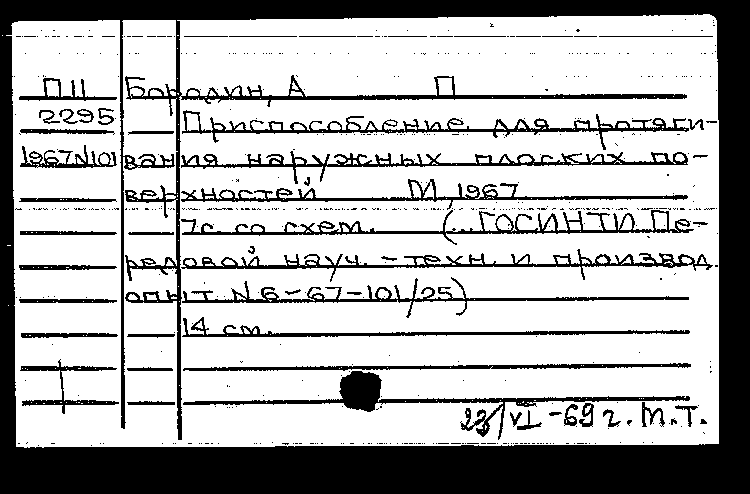 П11 Бородин, А П
2295 Приспособление для протяги-
1967N101 вания наружных плоских по-
верхностей М, 1967
7с. со схем. (...ГОСИНТИ Пе-
редовой науч. - техн. и производ.
опыт. N 6-67-101/25)
14 см.
23/VI -69 г. М.Т.